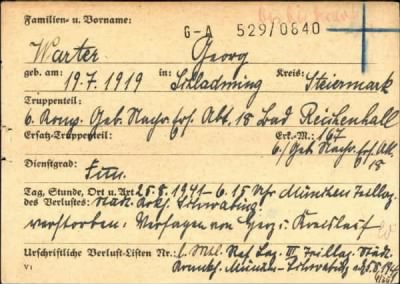 Familien- u. Vorname:
G-A 529/0840
Warter Georg
geb. am: 19.7.1919 in: Schladming Kreis: Steiermark
Truppenteil:
6. Komp. Geb. Nachr. Abt. 18 Bad Reichenhall
Ersatz-Truppenteil: Erk.-M.: 167
6./Geb Nachr. Abt. 18
Dienstgrad: Fun.
Tag, Stunde, Ort u. Art 25.8.1941 6.15 Uhr München
des Verlustes: Städt. Schwabing
verstorben: Versagen von Herz u. Kreislauf
Urschriftliche Verlust-Listen Nr. Res. Laz. III Teillaz. Städt.
V 1 München-Schwabing